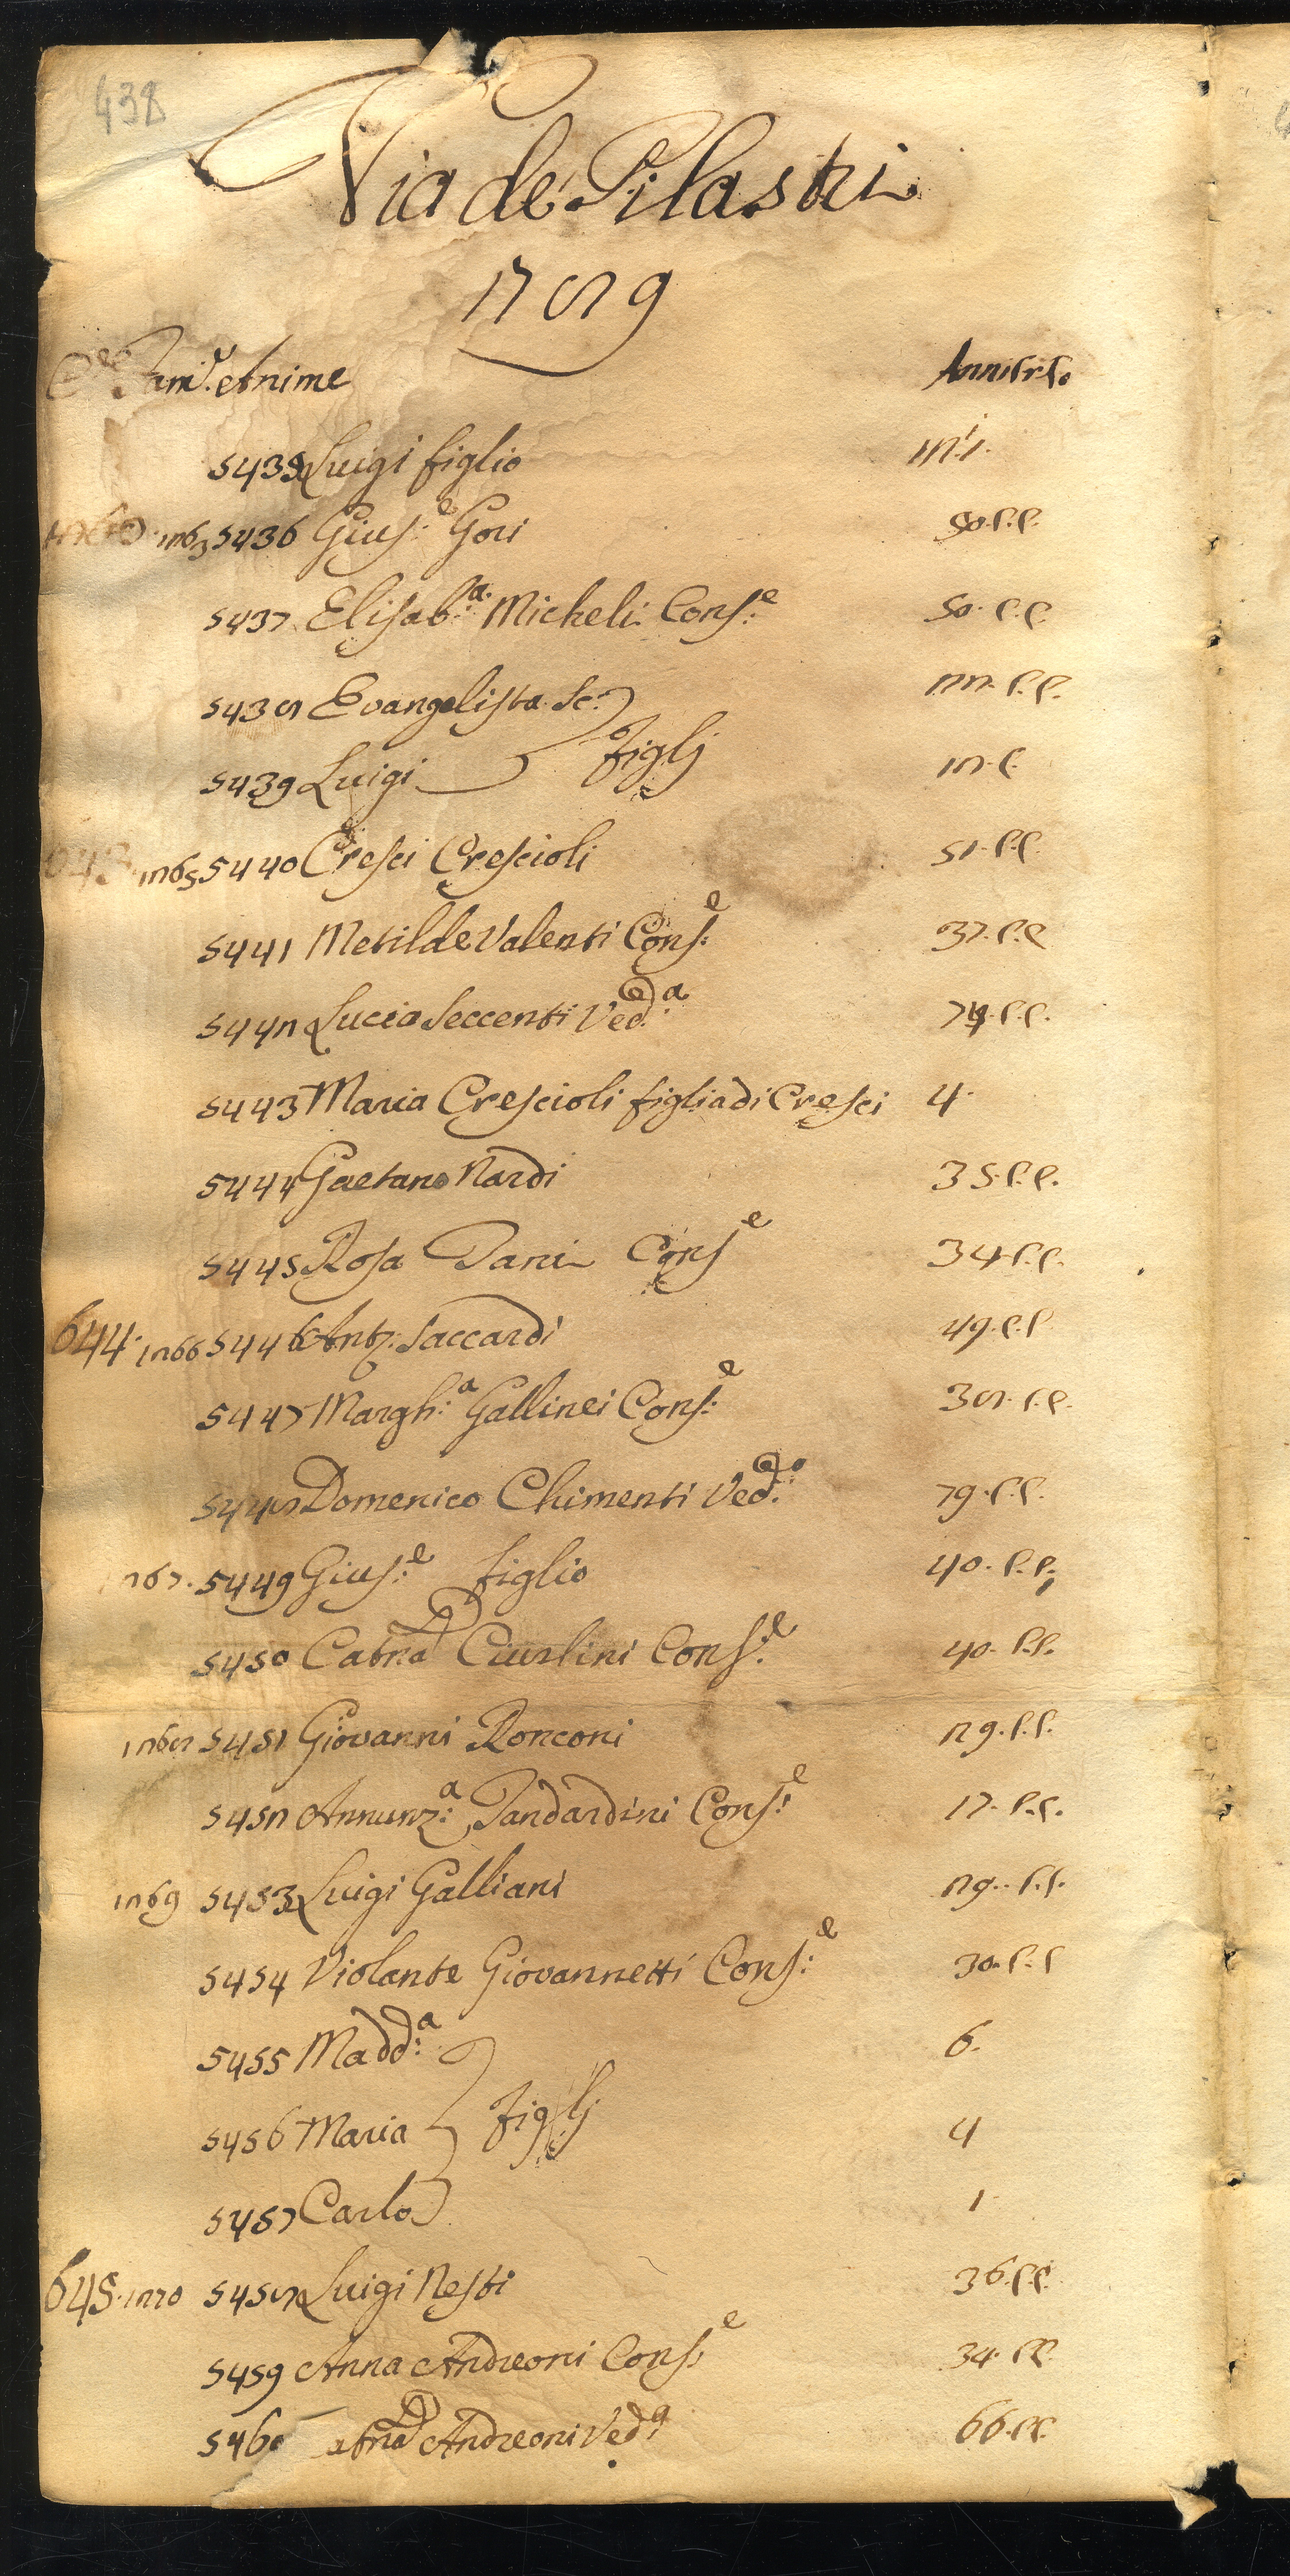 438
Via de' Pilastri
1789
Case Fam.e Anime
5435 Luigi figlio
5436 Gius:e Gori 50. C.C.
5437 Elisab:a Micheli Cons:e 50. C.C.
5438 Evangelista Sc: 22. C.C.
5439 Luigi figlj
1265 5440 Cresci Crescioli 51. C.C.
5441 Metilde Valenti Cons:e 37. C.C.
5442 Lucia Seccenti Ved:a 74. C.C.
5443 Maria Crescioli figlia di Cresci 4.
5444 Gaetano Nardi 35. C.C.
5445 Rosa Pani Cons:e 34. C.C.
644. 1266 5446 Ant: Saccardi 49. C.C.
5447 Margh:a Gallinei Cons:e 38. C.C.
5448 Domenico Chimenti Ved:o 79. C.C.
1267. 5449 Gius:e figlio 40. C.C.
5450 Catna Ciurlini Cons:e 40. C.C.
1268 5451 Giovanni Ronconi 29. C.C.
5452 Annunz:a Pandardini Cons:e 17. C.C.
1269 5453 Luigi Galliani 29. C.C.
5454 Violante Giovannetti Cons:e 30. C.C.
5455 Madd:a 6.
5456 Maria figlj 4
5457 Carlo 1
645. 1270 5458 Luigi Nesti 36. C.C.
5459 Anna Andreoni Cons:e 34. C.C.
5460 atna Andreoni Ved:a 66. C.C.